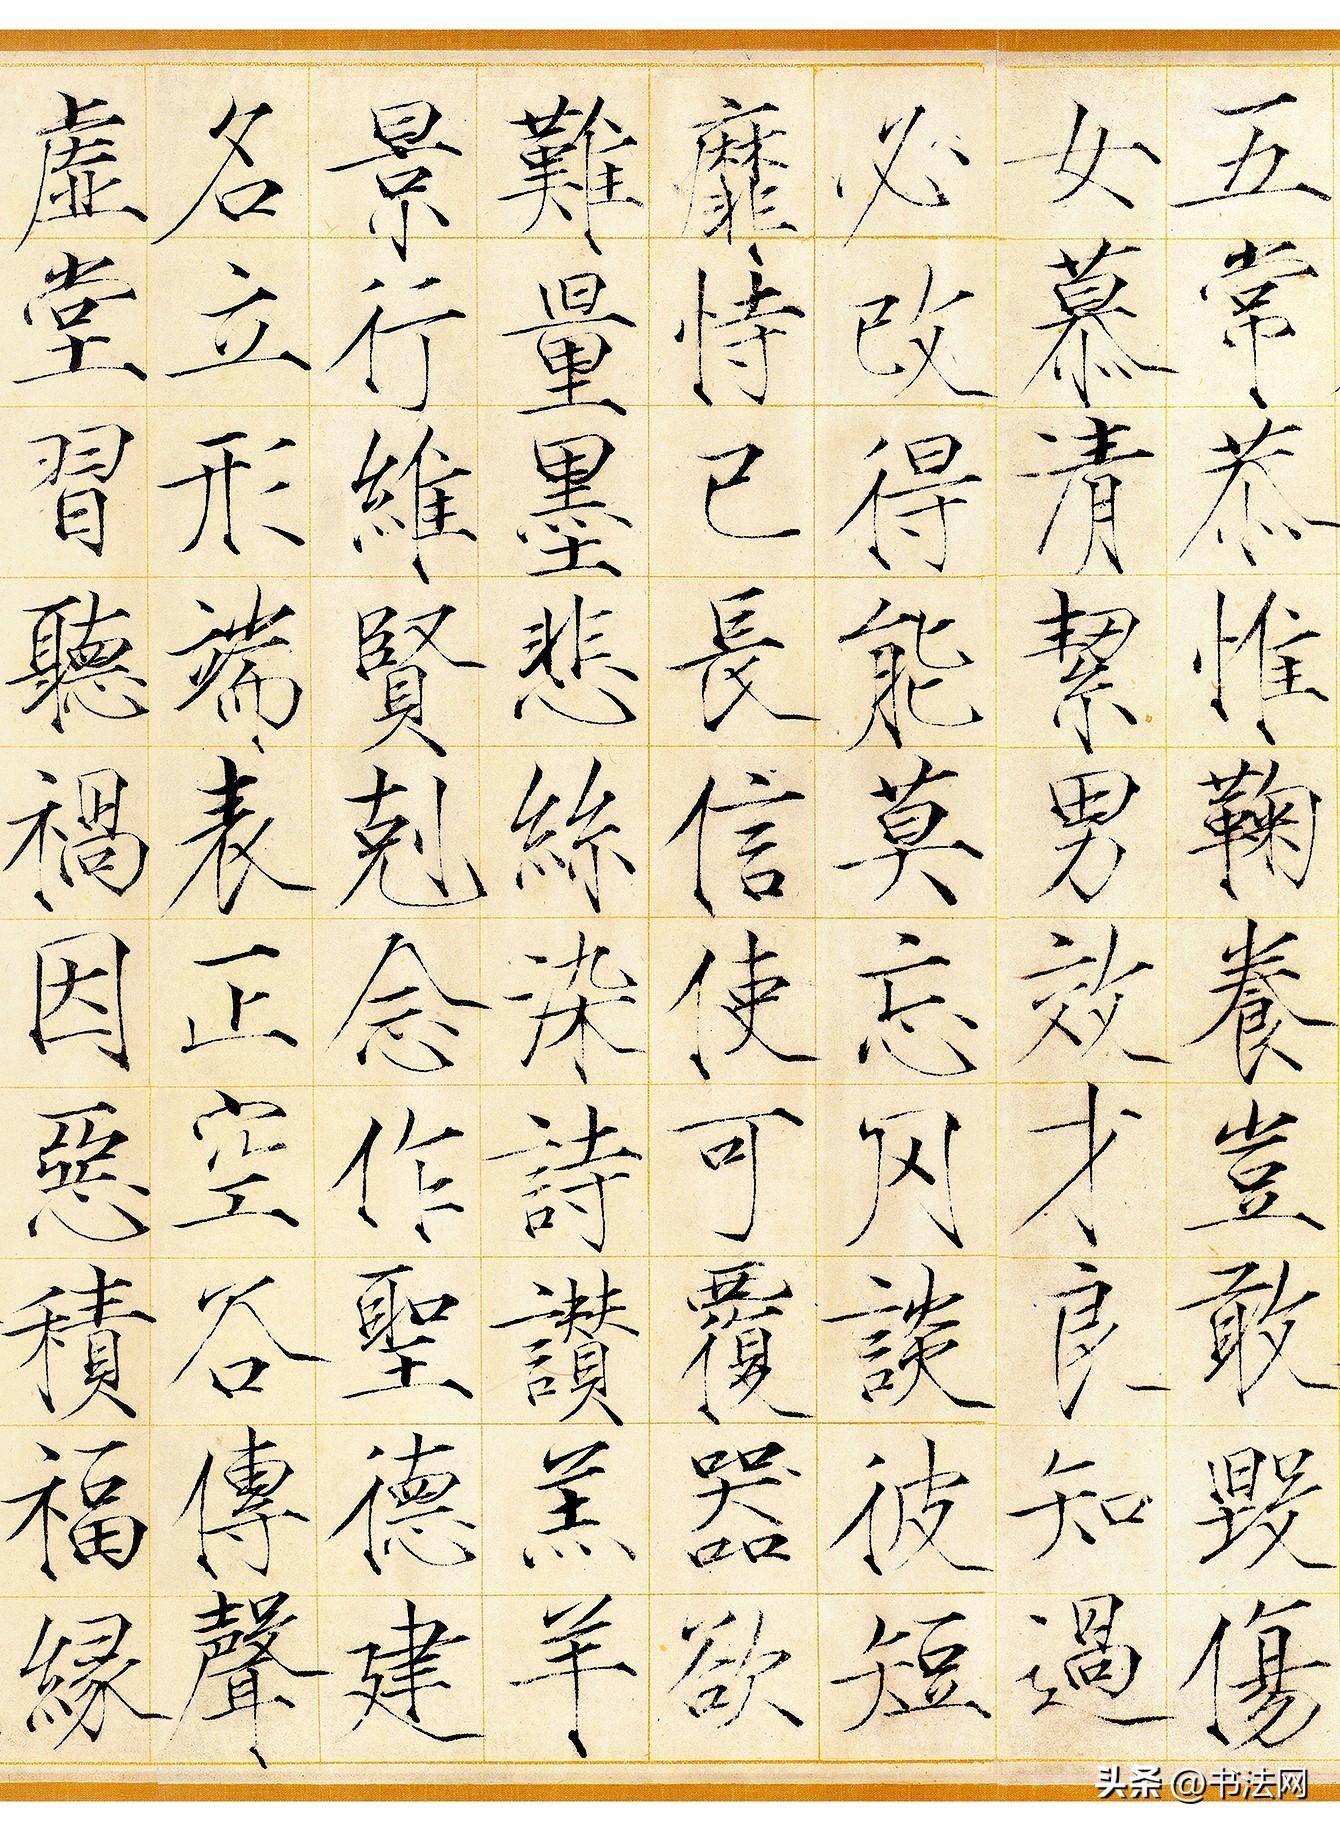 五常恭惟鞠養豈敢毀傷
女慕清絜男效才良知過
必改得能莫忘罔談彼短
靡恃己長信使可覆器欲
難量墨悲絲染詩讚羔羊
景行維賢剋念作聖德建
名立形端表正空谷傳聲
虚堂習聽禍因惡積福緣
头条 @书法网